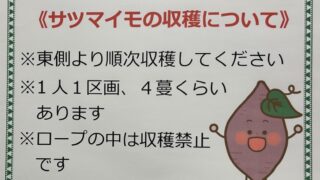 《サツマイモの収穫について》
※東側より順次収穫してください
※1人1区画、4蔓くらい
あります
※ロープの中は収穫禁止
です